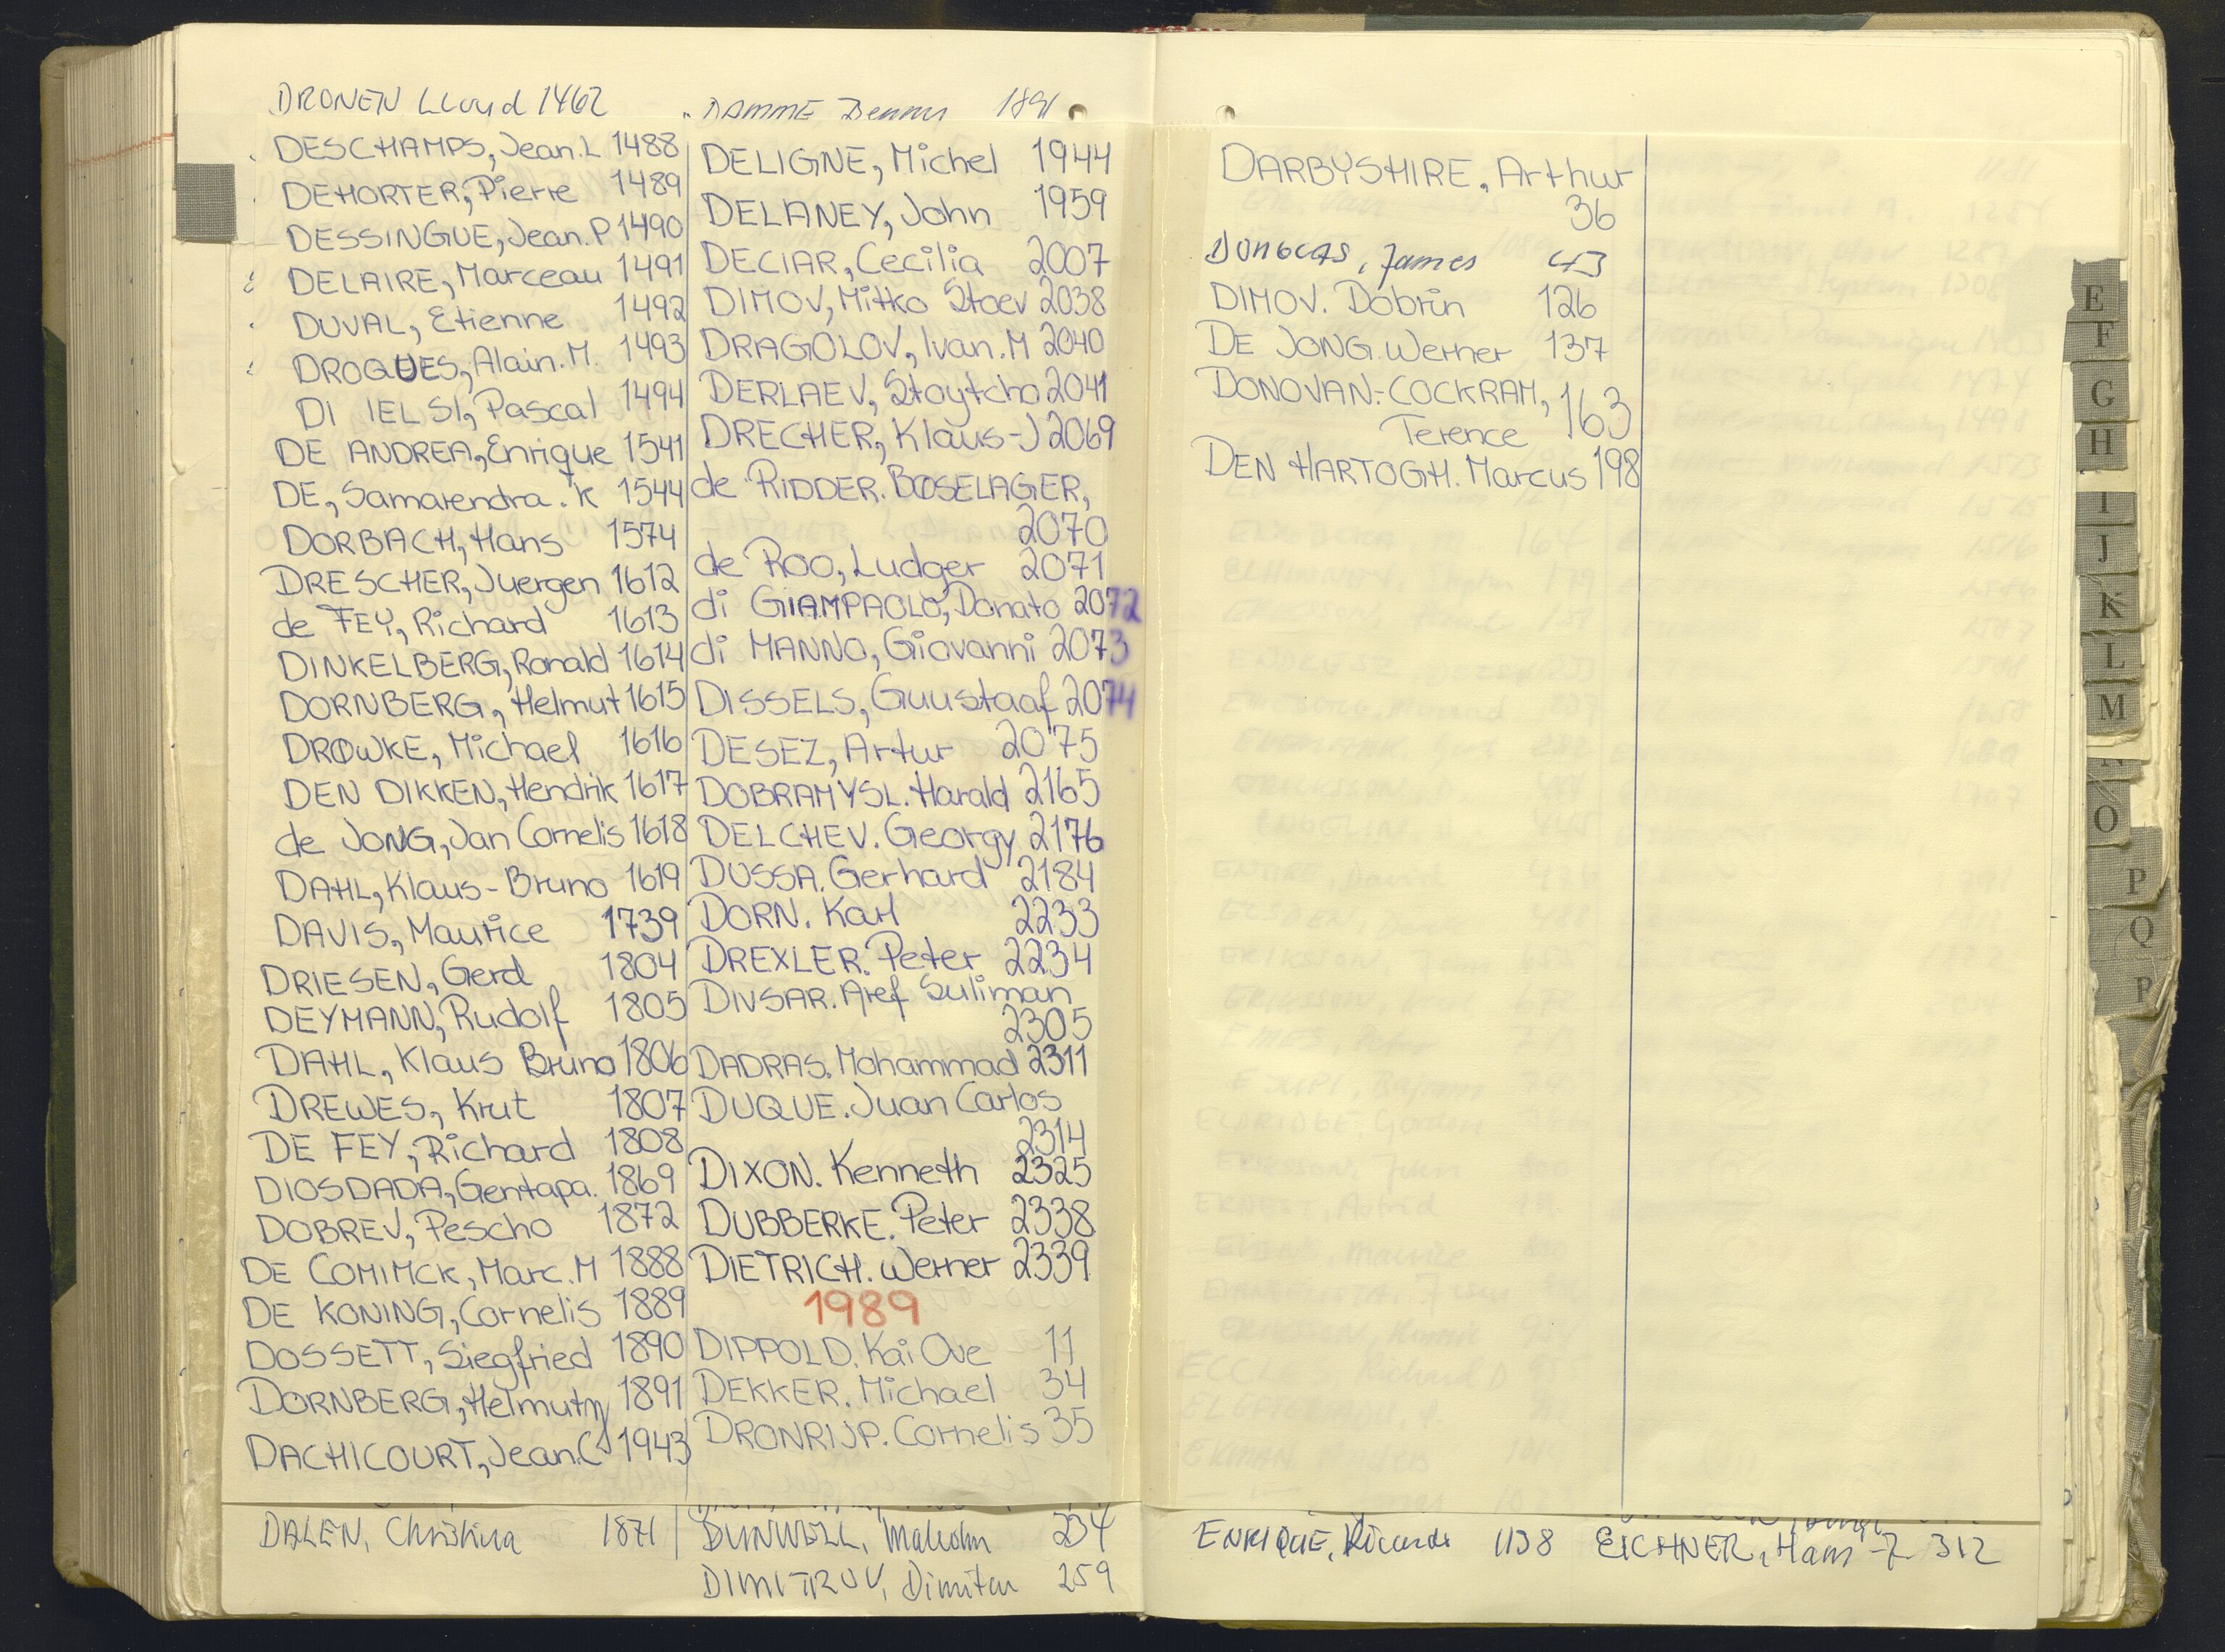 DRONEN Lloyd 1462
DESCHAMPS, Jean.L 1488
DEHORTER, Pierre 1489
DESSINGUE, Jean.P 1490
DELAIRE, Marceau 1491
DUVAL, Etienne 1492
DROQUES, Alain.M. 1493
DI IELSI, Pascal 1494
DE ANDREA, Enrique 1541
DE, Samarendra.K 1544
DORBACH, Hans 1574
DRESCHER, Juergen 1612
de FEY, Richard 1613
DINKELBERG, Ronald 1614
DORNBERG, Helmut 1615
DROWKE, Michael 1616
DEN DIKKEN, Hendrik 1617
de JONG, Jan Cornelis 1618
DAHL, Klaus-Bruno 1619
DAVIS, Maurice 1739
DRIESEN, Gerd 1804
DEYMANN, Rudolf 1805
DAHL, Klaus Bruno 1806
DREWES, Krut 1807
DE FEY, Richard 1808
DIOSDADA, Gentapa. 1869
DOBREV, Pescho 1872
DE COMIMCK, Marc.M 1888
DE KONING, Cornelis 1889
DOSSETT, Siegfried 1890
DORNBERG, Helmut 1891
DACHICOURT, Jean.C 1943
DALEN, Christina 1871
DAMME
DELIGNE, Michel 1944
DELANEY, John 1959
DECIAR, Cecilia 2007
DIMOV, Mitko Stoev 2038
DRAGOLOV, Ivan.M 2040
DERLAEV, Stoytcho 2041
DRECHER, Klaus-J 2069
de RIDDER. BOSELAGER,
2070
de ROO, Ludger 2071
di GIAMPAOLO, Donato 2072
di MANNO, Giovanni 2073
DISSELS, Guustaaf 2074
DESEZ, Artur 2075
DOBRAMYSL. Harald 2165
DELCHEV. Georgy 2176
DUSSA. Gerhard 2184
DORN. Karl 2233
DREXLER. Peter 2234
DIVSAR. Aref Suliman
2305
DADRAS. Mohammad 2311
DUQUE. Juan Carlos
2314
DIXON. Kenneth 2325
DUBBERKE. Peter 2338
DIETRICH. Werner 2339
1989
DIPPOLD. Kai Ove 11
DEKKER. Michael 34
DRONRIJP. Cornelis 35
DUNWELL, Malcolm 234
DIMITROV, Dimitar 259
DARBYSHIRE. Arthur
36
DOUGLAS, James 43
DIMOV. Dobrin 126
DE JONG. Werner 137
DONOVAN-COCKRAM,
Terence 163
DEN HARTOGH. Marcus 198
ENRIQUE, Ricardo 1138
EICHNER, Hans-J 312
E
F
G
H
I
J
K
L
M
O
P
Q